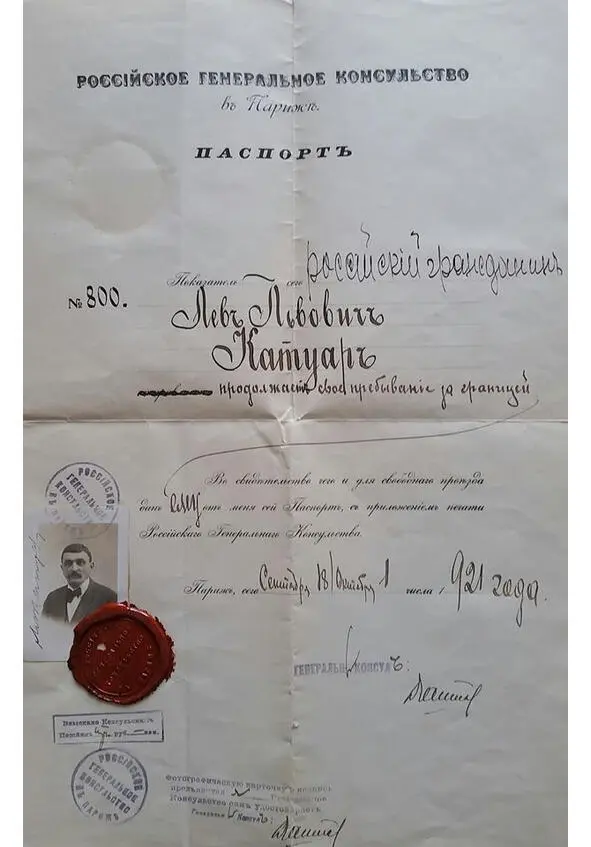 РОССІЙСКОЕ ГЕНЕРАЛЬНОЕ КОНСУЛЬСТВО
въ Парижѣ.
ПАСПОРТЪ
Показатель сего россійскій гражданинъ
№ 800.
Левъ Львовичъ
Катуаръ
продолжаетъ свое пребываніе за границей
Въ свидѣтельство чего и для свободнаго проѣзда
данъ ему отъ меня сей Паспортъ, съ приложеніемъ печати
Россійскаго Генеральнаго Консульства.
Парижъ, сего Сентября 18/Октября 1 числа 1921 года.
ГЕНЕРАЛЬНЫЙ КОНСУЛЪ:
РОССІЙСКОЕ
ГЕНЕРАЛЬНОЕ
КОНСУЛЬСТВО
ВЪ
Взыскано Консульскихъ
Пошлинъ руб. коп.
РОССІЙСКОЕ
ГЕНЕРАЛЬНОЕ
КОНСУЛЬСТВО
ВЪ ПАРИЖѢ
Фотографическую карточку и подпись
предъявителя Генеральное
Консульство симъ удостовѣряетъ
Генеральный Консулъ: